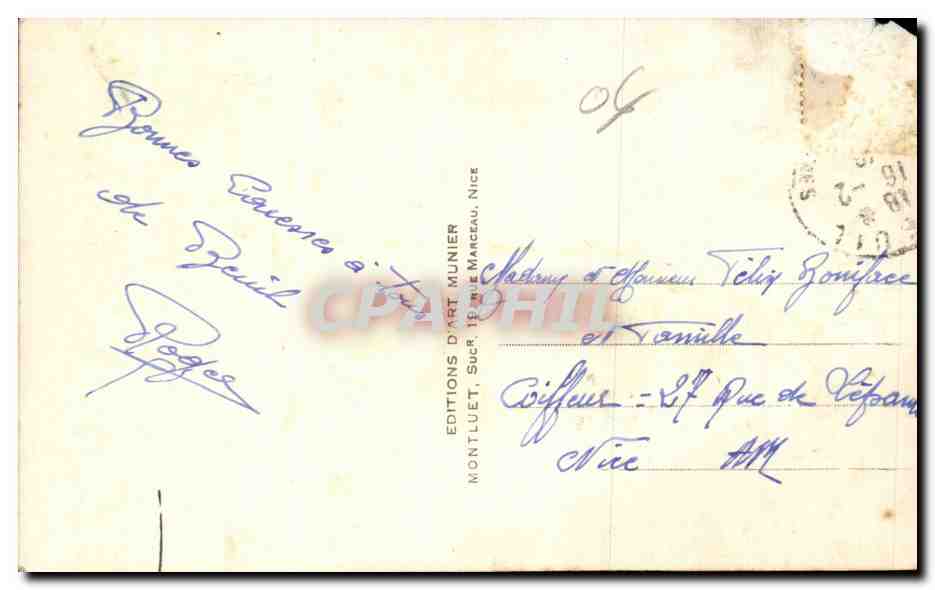 Bonnes Caresses à tous
de Beuil
Roger
04
EDITIONS D'ART MUNIER
MONTLUET, SUCR. 19, RUE MARCEAU, NICE
CPAPHIL
Madame et Monsieur Félix Boniface
et Famille
Coiffeur = 27 Rue de Lépante
Nice AM